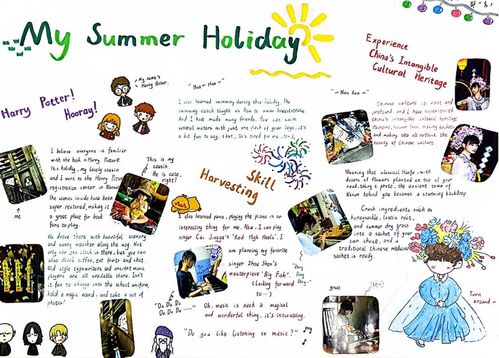 My Summer Holiday
Harry Potter!
Hooray!
My name's
Harry Potter.
I believe everyone is familiar
with the book in Harry Potter.
This holiday, my lovely cousin
and I went to the Harry Potter
registration center in
The scenes inside have been
super restored, making it
a great place for book
fans to play.
We drove there with beautiful scenery
and sunny weather along the way. Not
only can you click in there, but you can
also drink coffee, eat soups and
Old style typewriters and ancient music
players are all available there. Isn't
it fun to change into the school uniform,
hold a magic wand, and take a set of
photos?
me
This is my
cousin.
He is cute,
right?
I also learned swimming during this holiday. The
swimming coach taught us how to swim breaststroke.
And I have made many friends. You can swim
several meters with just one push of your legs, it's
a bit fun to say, but, it's tired for me.
Skill
Harvesting
I also learned piano, playing the piano is an
interesting thing for me. Now, I can play
singer Cai Jianya's "Red High Heels." I
am planning my favorite
singer Zhou Shen's
masterpiece "Big Fish".
(Looking forward
to~~)
"Da Da Da
Da Da ..."
Oh, music is such a magical
and wonderful thing, it's interesting.
"Do you like listening to music?"
Experience
China's Intangible
Cultural Heritage
Chinese culture is rich and
profound and I have experienced
China's intangible cultural heritage
making sachets
and making it to understand the
beauty of Chinese culture.
Wearing this classical Hanfu with
flowers planted on top of your
head, taking a photo, the ancient town of
behind you becomes a stunning backdrop
Crush ingredients, such as
honeysuckle, lotus
and summer dry grass
into a sachet of your
own choice, and a
traditional Chinese medicine
sachet is ready.
Turn
around